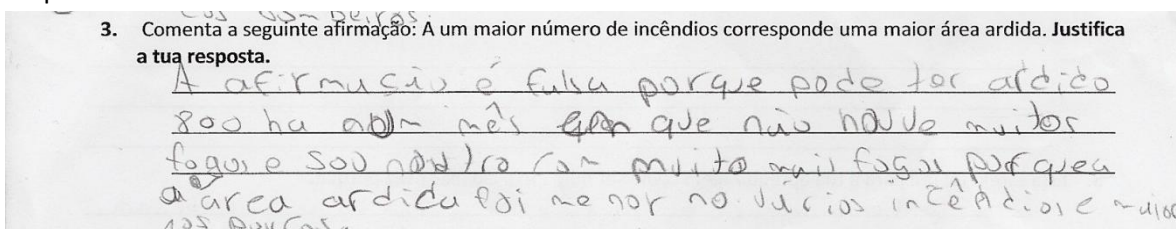 los bombeiros.
3. Comenta a seguinte afirmação: A um maior número de incêndios corresponde uma maior área ardida. Justifica
a tua resposta.
A afirmusão é falsa porque pode ter ardido
800 ha num mês em que não houve muitos
fogos e 500 noutro com muito mais fogos porque a
a área ardida foi menor no vários incêndios e maior
nos poucos.